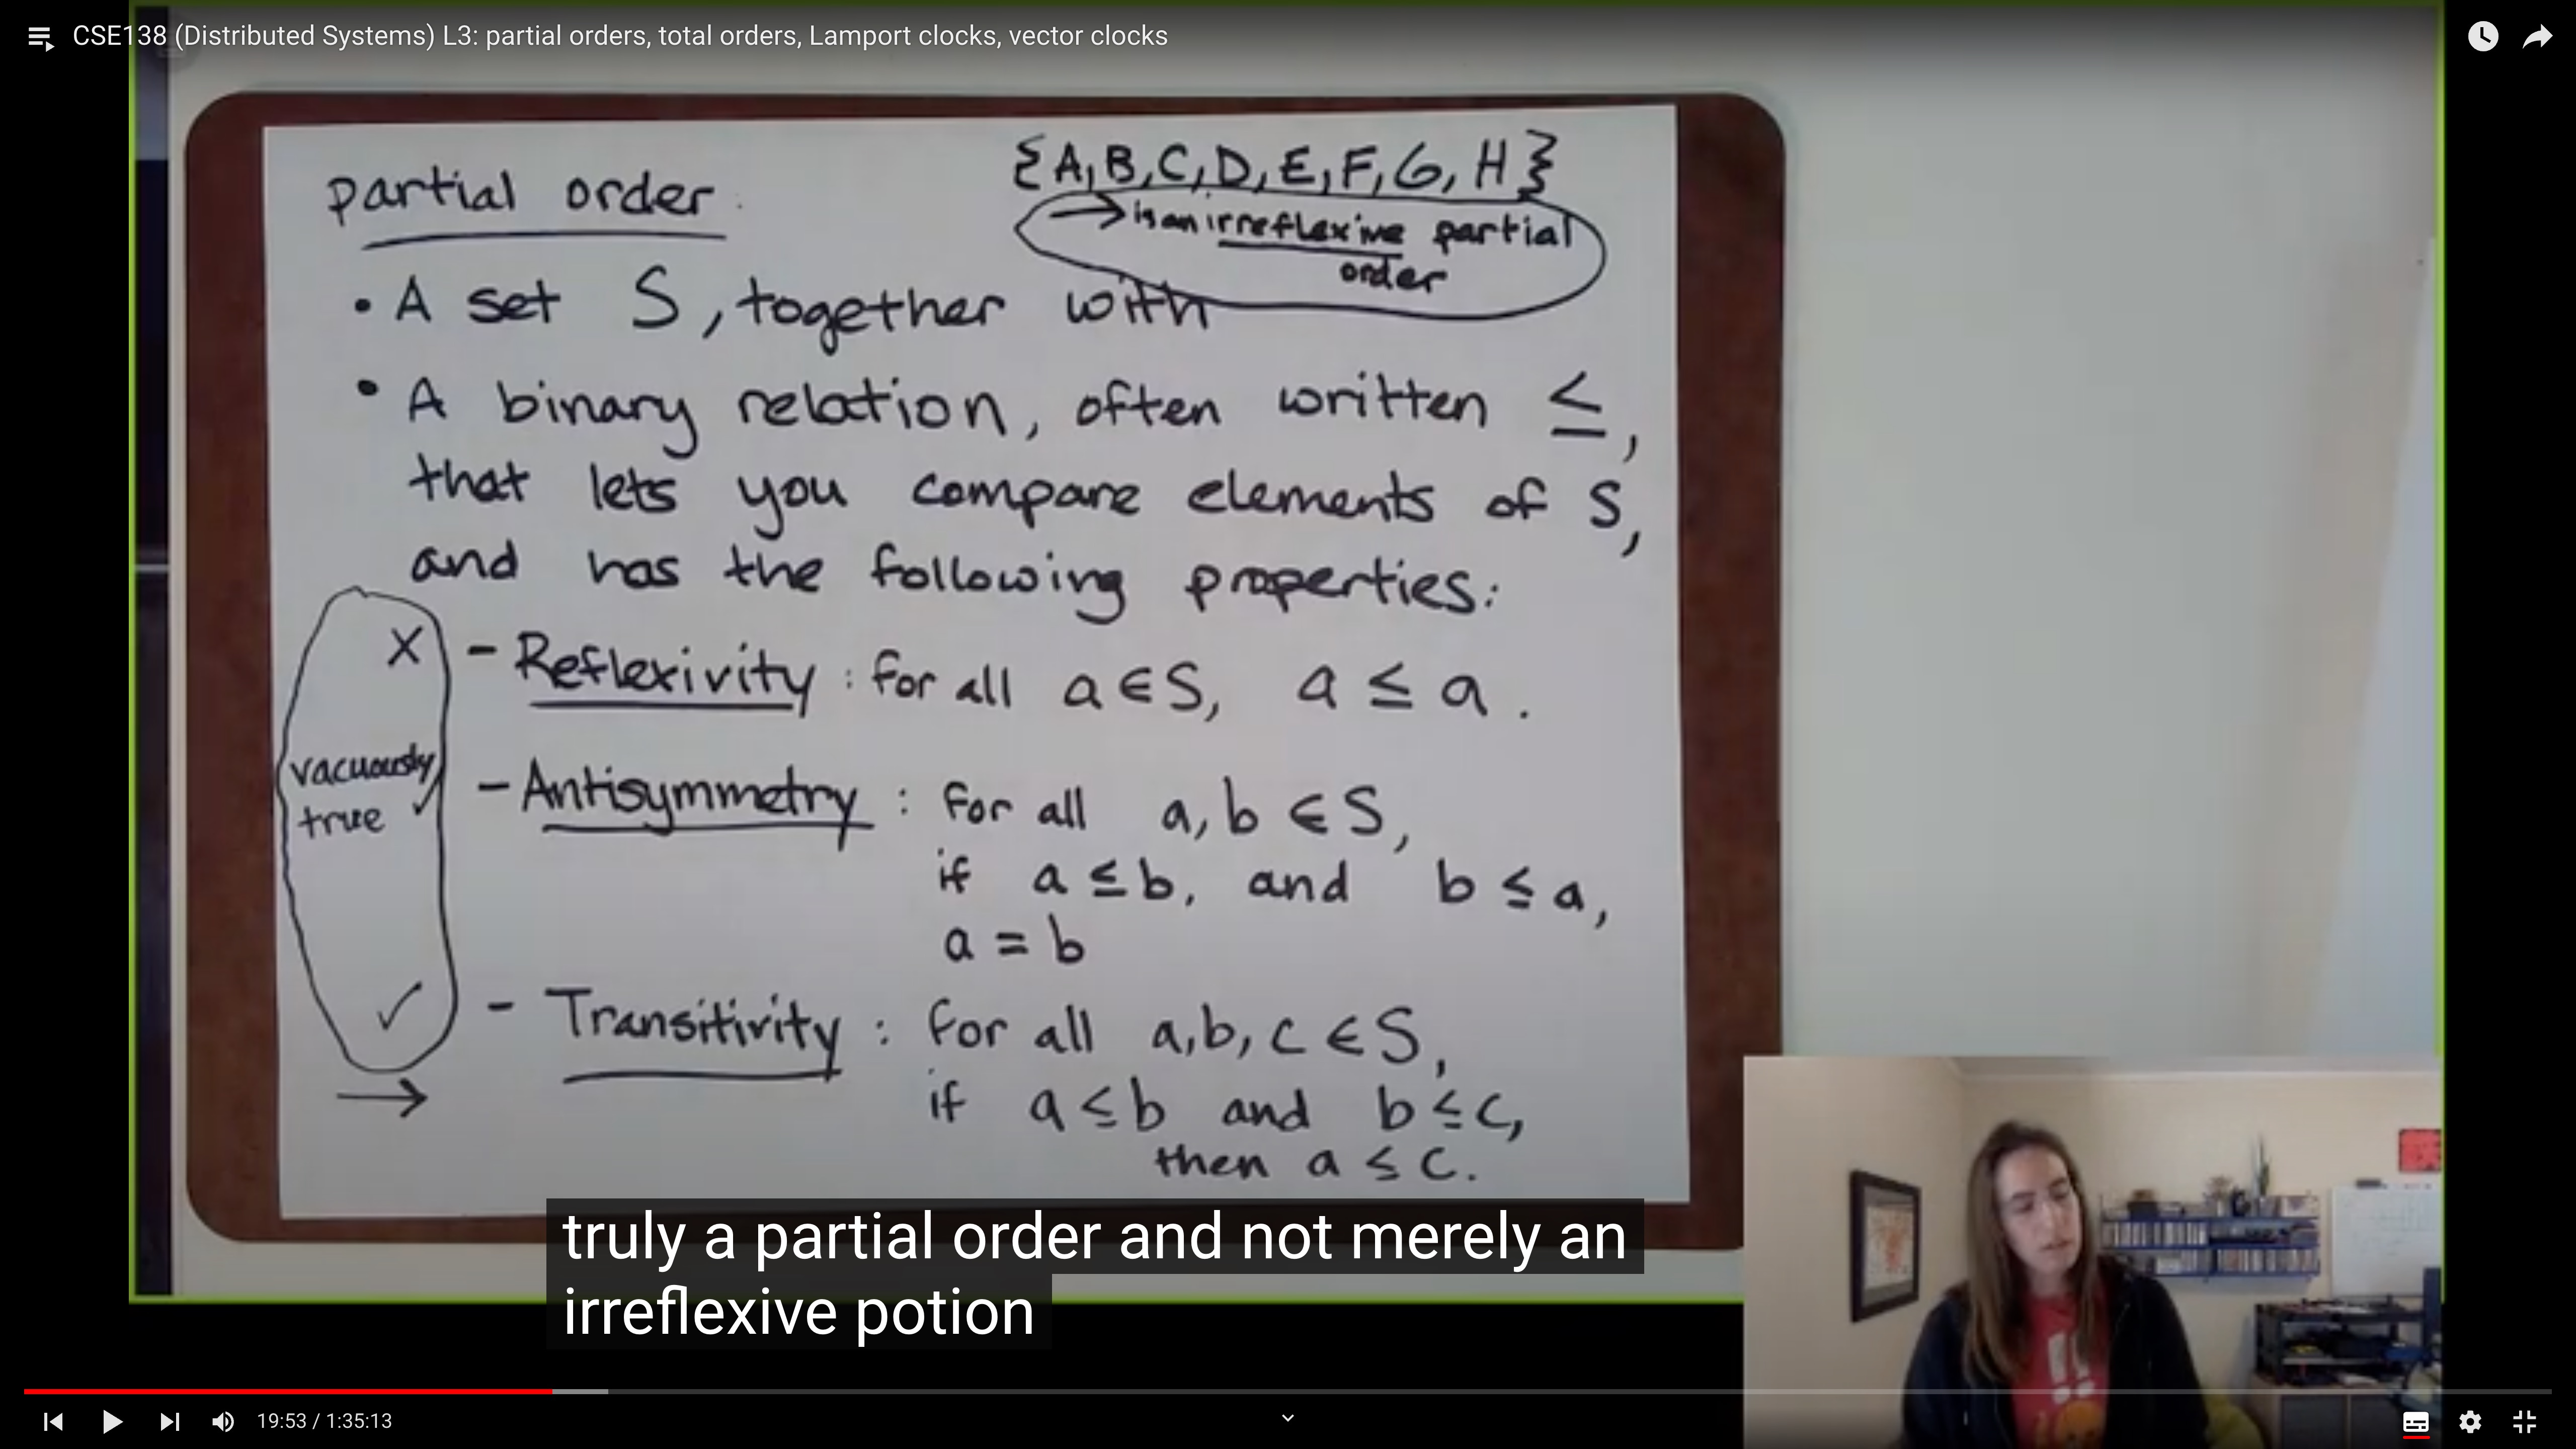 CSE138 (Distributed Systems) L3: partial orders, total orders, Lamport clocks, vector clocks
{A,B,C,D,E,F,G,H}
→ is an irreflexive partial
order
partial order:
• A set S, together with
• A binary relation, often written ≤,
that lets you compare elements of S,
and has the following properties:
X - Reflexivity: for all a∈S, a ≤ a.
vacuously
true ✓
- Antisymmetry: for all a,b ∈ S,
if a ≤ b, and b ≤ a,
a = b
✓ - Transitivity: for all a,b,c ∈ S,
if a ≤ b and b ≤ c,
then a ≤ c.
→
truly a partial order and not merely an
irreflexive potion
19:53 / 1:35:13